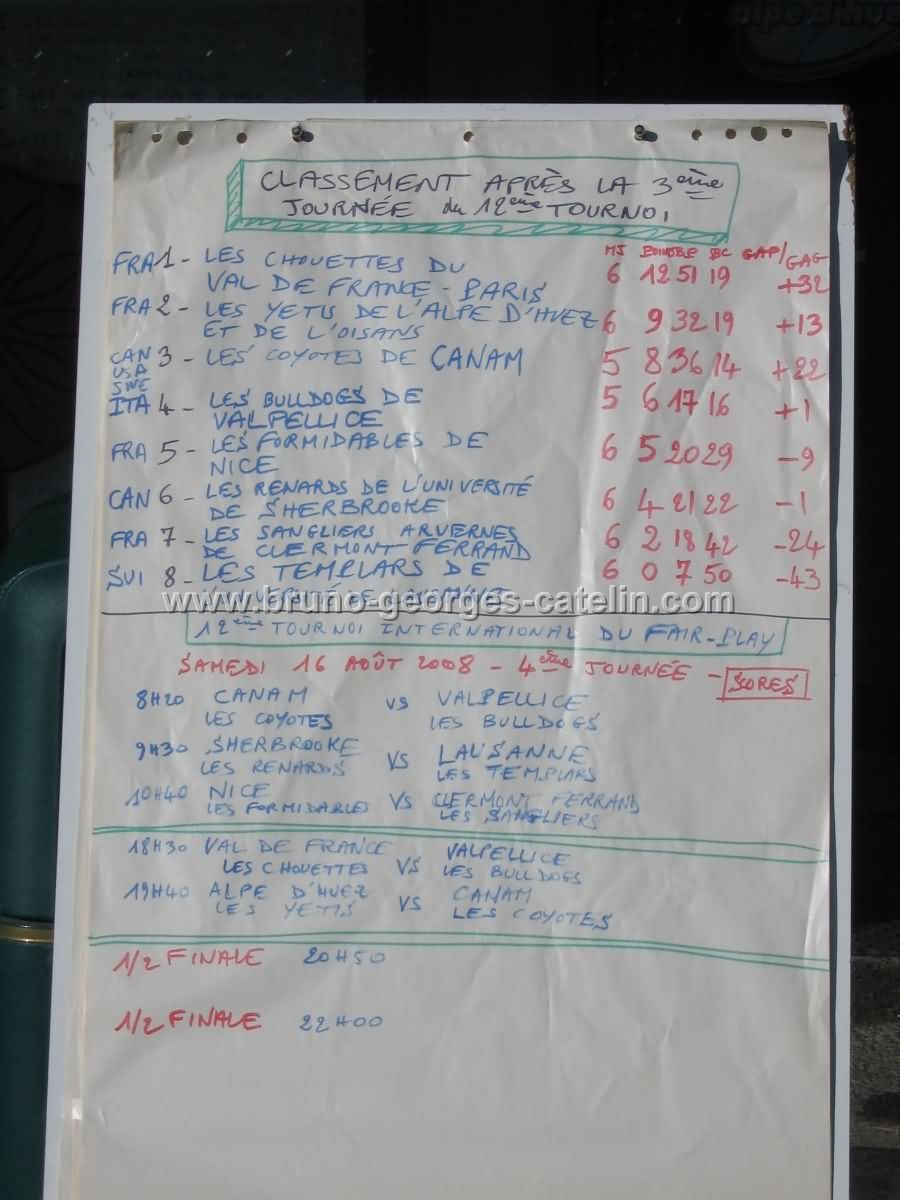 alpe d'hue
CLASSEMENT APRÈS LA 3ème
JOURNÉE du 12ème TOURNOI
MJ BP BC GAP/GAG
FRA 1 - LES CHOUETTES DU
VAL DE FRANCE - PARIS 6 12 51 19 +32
FRA 2 - LES YETIS DE L'ALPE D'HUEZ
ET DE L'OISANS 6 9 32 19 +13
CAN USA SWE 3 - LES COYOTES DE CANAM 5 8 36 14 +22
ITA 4 - LES BULLDOGS DE
VALPELLICE 5 6 17 16 +1
FRA 5 - LES FORMIDABLES DE
NICE 6 5 20 29 -9
CAN 6 - LES RENARDS DE L'UNIVERSITÉ
DE SHERBROOKE 6 4 21 22 -1
FRA 7 - LES SANGLIERS ARVERNES
DE CLERMONT FERRAND 6 2 18 42 -24
SUI 8 - LES TEMPLARS DE 6 0 7 50 -43
L'UNIVERSITÉ DE LAUSANNE
www.bruno-georges-catelin.com
12ème TOURNOI INTERNATIONAL DU FAIR-PLAY
SAMEDI 16 AOÛT 2008 - 4ème JOURNÉE - SCORES
8H20 CANAM vs VALPELLICE
LES COYOTES LES BULLDOGS
9H30 SHERBROOKE VS LAUSANNE
LES RENARDS LES TEMPLARS
10H40 NICE VS CLERMONT FERRAND
LES FORMIDABLES LES SANGLIERS
18H30 VAL DE FRANCE VS VALPELLICE
LES CHOUETTES LES BULLDOGS
19H40 ALPE D'HUEZ VS CANAM
LES YETIS LES COYOTES
1/2 FINALE 20H50
1/2 FINALE 22H00